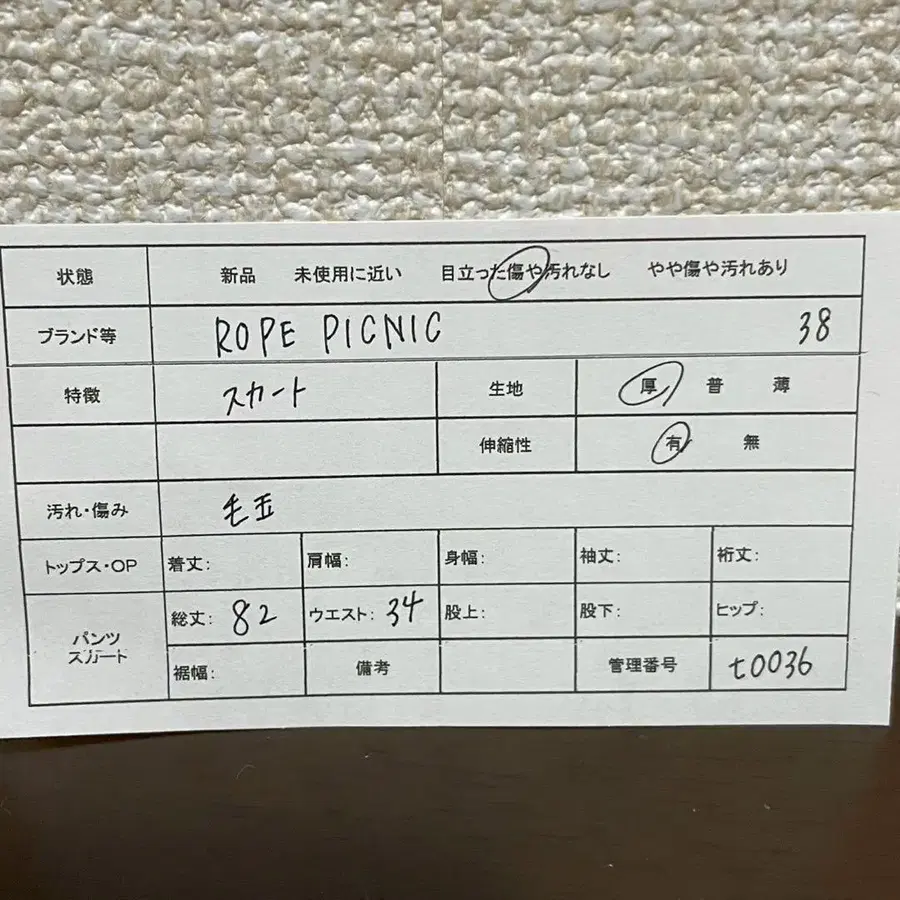 状態 新品 未使用に近い 目立った傷や汚れなし やや傷や汚れあり
ブランド等 ROPE PICNIC 38
特徴 スカート 生地 厚 普 薄
伸縮性 有 無
汚れ・傷み 毛玉
トップス・OP 着丈: 肩幅: 身幅: 袖丈: 裄丈:
パンツ スカート 総丈: 82 ウエスト: 34 股上: 股下: ヒップ:
裾幅: 備考 管理番号 t0036